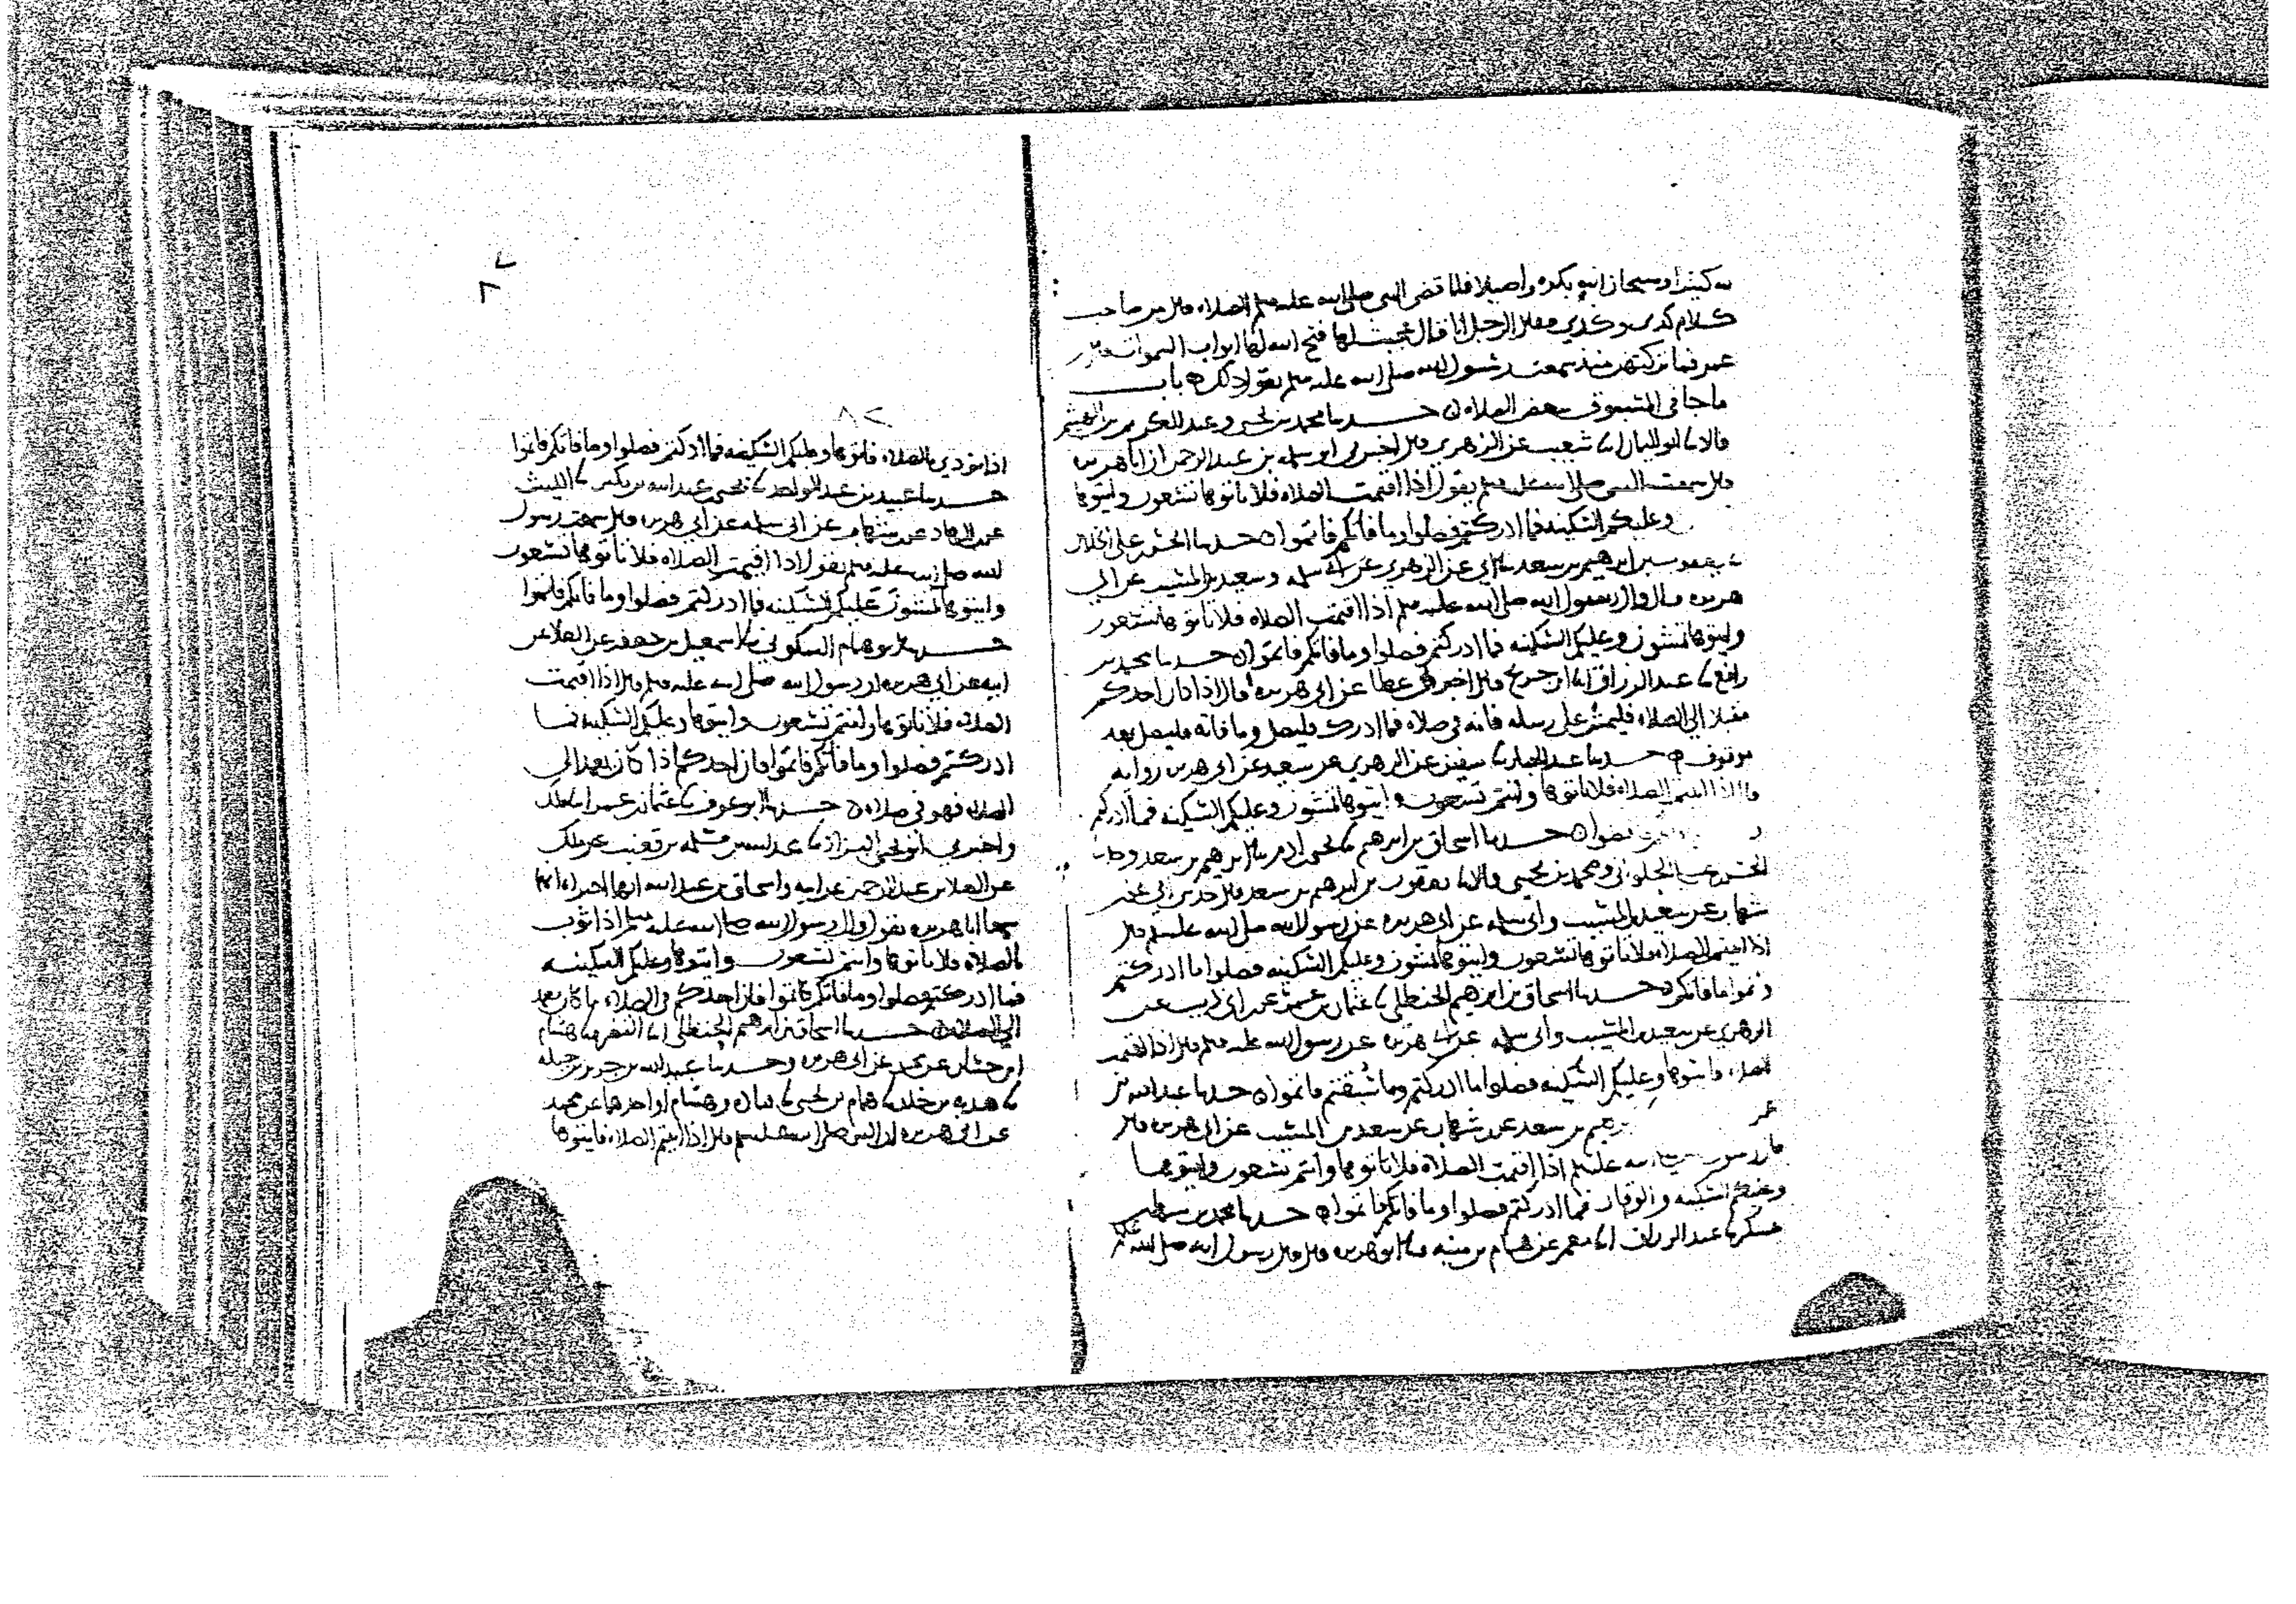 لله كثيرا وسبحان الله بكره واصيلا فلما قضى النبي صلى الله عليه وسلم الصلاه قال من صاحب
كلام كذى وكذى فقال الرجل انا قال عجبت لها فتح الله لها ابواب السموات قال
عمر فما تركتهن منذ سمعت رسول الله صلى الله عليه وسلم يقول ذلك باب
ما جا في المسبوق ببعض الصلاه حدثنا محمد بن يحيى وعبد الكريم بن الهيثم
قالا نا ابو اليمان انا شعيب عن الزهري قال اخبرني ابو سلمه بن عبد الرحمن ان ابا هريره
قال سمعت النبي صلى الله عليه وسلم يقول اذا اقيمت الصلاه فلا تاتوها تسعون وايتوها
وعليكم السكينه فما ادركتم فصلوا وما فاتكم فاتموا حدثنا الحسن بن علي
نا يعقوب بن ابراهيم بن سعد نا ابي عن الزهري عن ابي سلمه وسعيد بن المسيب عن ابي
هريره قال قال رسول الله صلى الله عليه وسلم اذا اقيمت الصلاه فلا تاتوها تسعون
وايتوها تمشون وعليكم السكينه فما ادركتم فصلوا وما فاتكم فاتموا حدثنا محمد بن
رافع نا عبد الرزاق انا ابن جريج قال اخبرني عطا عن ابي هريره قال اذا كان احدكم
مقبلا الى الصلاه فليمش على رسله فانه في صلاه فما ادرك فليصل وما فاته فليصل بعد
موقوف حدثنا عبد الجبار نا سفين عن الزهري عن سعيد عن ابي هريره روايه
قال اذا اتيتم الصلاه فلا تاتوها وانتم تسعون وايتوها تمشون وعليكم السكينه فما ادركتم
حدثنا اسحاق بن ابراهيم نا يحيى بن ادم نا ابراهيم بن سعد
الحسن بن علي الحلواني ومحمد بن يحيى قالا نا يعقوب بن ابراهيم بن سعد قال حدثني ابي عن
شهاب عن سعيد بن المسيب وابي سلمه عن ابي هريره عن رسول الله صلى الله عليه وسلم قال
اذا اتيتم الصلاه فلا تاتوها تسعون وايتوها تمشون وعليكم السكينه فصلوا ما ادركتم
وتموا ما فاتكم حدثنا اسحاق بن ابراهيم الحنظلي نا عثمان بن عمر عن ابن ابي ذيب عن
الزهري عن سعيد بن المسيب وابي سلمه عن ابي هريره عن رسول الله عليه وسلم قال اذا اقيمت
الصلاه فايتوها وعليكم السكينه فصلوا ما ادركتم وما سبقتم فاتموا حدثنا عبد الله بن
بن سعد عن شهاب عن سعد بن المسيب عن ابي هريره قال
الله عليه وسلم اذا اقيمت الصلاه فلا تاتوها وانتم تسعون وايتوها
وعليكم السكينه والوقار فما ادركتم فصلوا وما فاتكم فاتموا حدثنا محمد بن سهل بن
عسكر نا عبد الرزاق انا معمر عن همام بن منبه قال نا ابو هريره قال قال رسول الله صلى الله عليه
اذا نودي بالصلاه فاتوها وعليكم السكينه فما ادركتم فصلوا وما فاتكم فاتموا
حدثنا عبيد بن عبد الواحد نا يحيى بن عبد الله بن بكير نا الليث
عن الهاد عن بن شهاب عن ابي سلمه عن ابي هريره قال سمعت رسول
الله صلى الله عليه وسلم يقول اذا اقيمت الصلاه فلا تاتوها تسعون
وايتوها تمشون عليكم السكينه فما ادركتم فصلوا وما فاتكم فاتموا
حدثنا ابو همام السكوني نا اسمعيل بن جعفر عن العلا عن
ابيه عن ابي هريره ان رسول الله صلى الله عليه وسلم قال اذا اقيمت
الصلاه فلا تاتوها وانتم تسعون وايتوها وعليكم السكينه فما
ادركتم فصلوا وما فاتكم فاتموا فان احدكم اذا كان يعمد الى
الصلاه فهو في صلاه حدثنا ابو عوف نا عثمان بن عمر انا مالك
واخبرني ابو يحيى البزاز نا عبد الله بن مسلمه بن قعنب عن مالك
عن العلا بن عبد الرحمن عن ابيه واسحاق بن عبد الله انهما اخبراه انهما
سمعا ابا هريره يقول قال رسول الله صلى الله عليه وسلم اذا ثوب
بالصلاه فلا تاتوها وانتم تسعون وايتوها وعليكم السكينه
فما ادركتم فصلوا وما فاتكم فاتموا فان احدكم في الصلاه ما كان يعمد
الى الصلاه حدثنا اسحاق بن ابراهيم الحنظلي انا النضر نا هشام
ابن حسان عن محمد عن ابي هريره وحدثنا عبيد الله بن جرير بن جبله
نا هدبه بن خلد نا همام بن يحيى نا وهشام او احدهما عن محمد
عن ابي هريره ان النبي صلى الله عليه وسلم قال اذا اتيتم الصلاه فايتوها